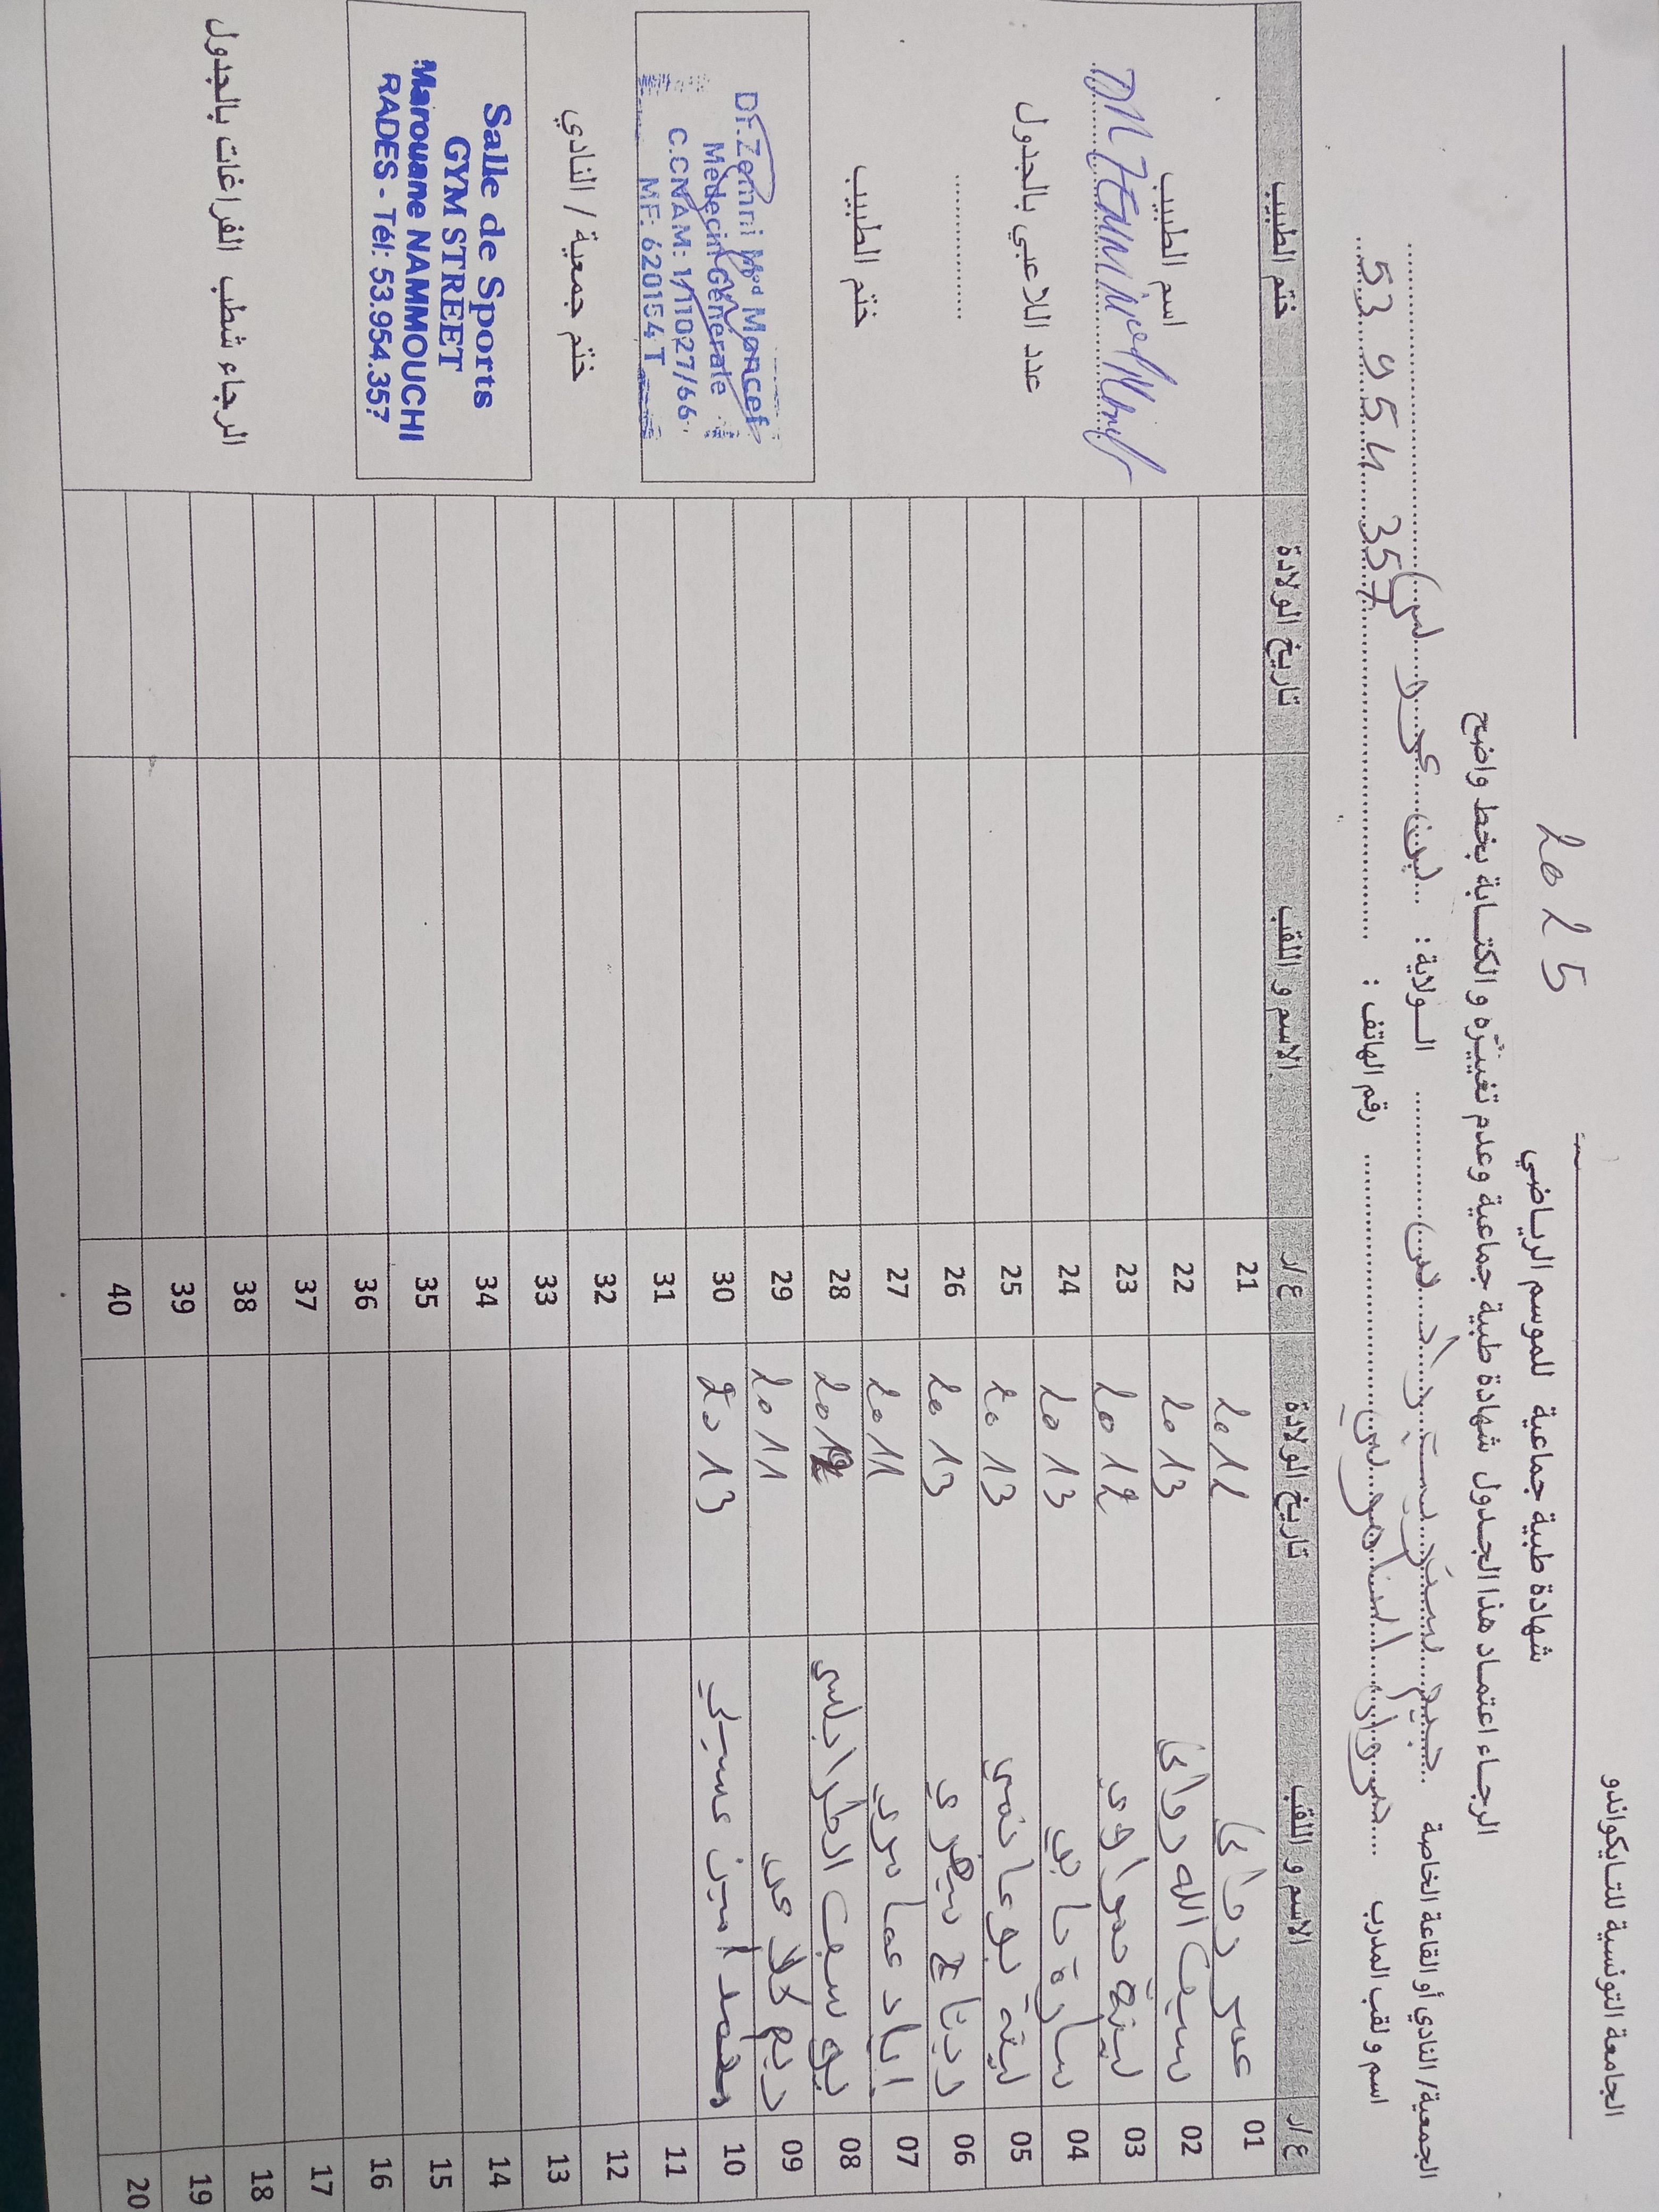 الجامعة التونسية للتايكواندو
شهادة طبية جماعية للموسم الرياضي 2025
الرجاء اعتماد هذا الجدول شهادة طبية جماعية وعدم تغييره و الكتابة بخط واضح
الجمعية/ النادي أو القاعة الخاصة جيم ستريت رادس الولاية : بن عروس
اسم و لقب المدرب مروان النموشي رقم الهاتف : 53 954 357
ع/ر الاسم و اللقب تاريخ الولادة ع/ر الاسم و اللقب تاريخ الولادة ختم الطبيب
01 عمر 2012 21
02 سيف الله 2013 22
03 لينة 2012 23
04 سارة 2013 24
05 لينة 2013 25
06 2013 26
07 اياد عماري 2011 27
08 يوسف الطرابلسي 2012 28
09 ريم 2011 29
10 محمد امين عسيلي 2013 30
11 31
12 32
13 33
14 34
15 35
16 36
17 37
18 38
19 39
20 40
اسم الطبيب
DR ZEMNI Med Moncef
عدد اللاعبي بالجدول
ختم الطبيب
Dr. Zemni Med Moncef
Médecin Générale
C.CNAM: 1/11027/66
MF: 620154T
ختم جمعية / النادي
Salle de Sports
GYM STREET
Marouane NAMMOUCHI
RADES - Tél: 53.954.357
الرجاء شطب الفراغات بالجدول